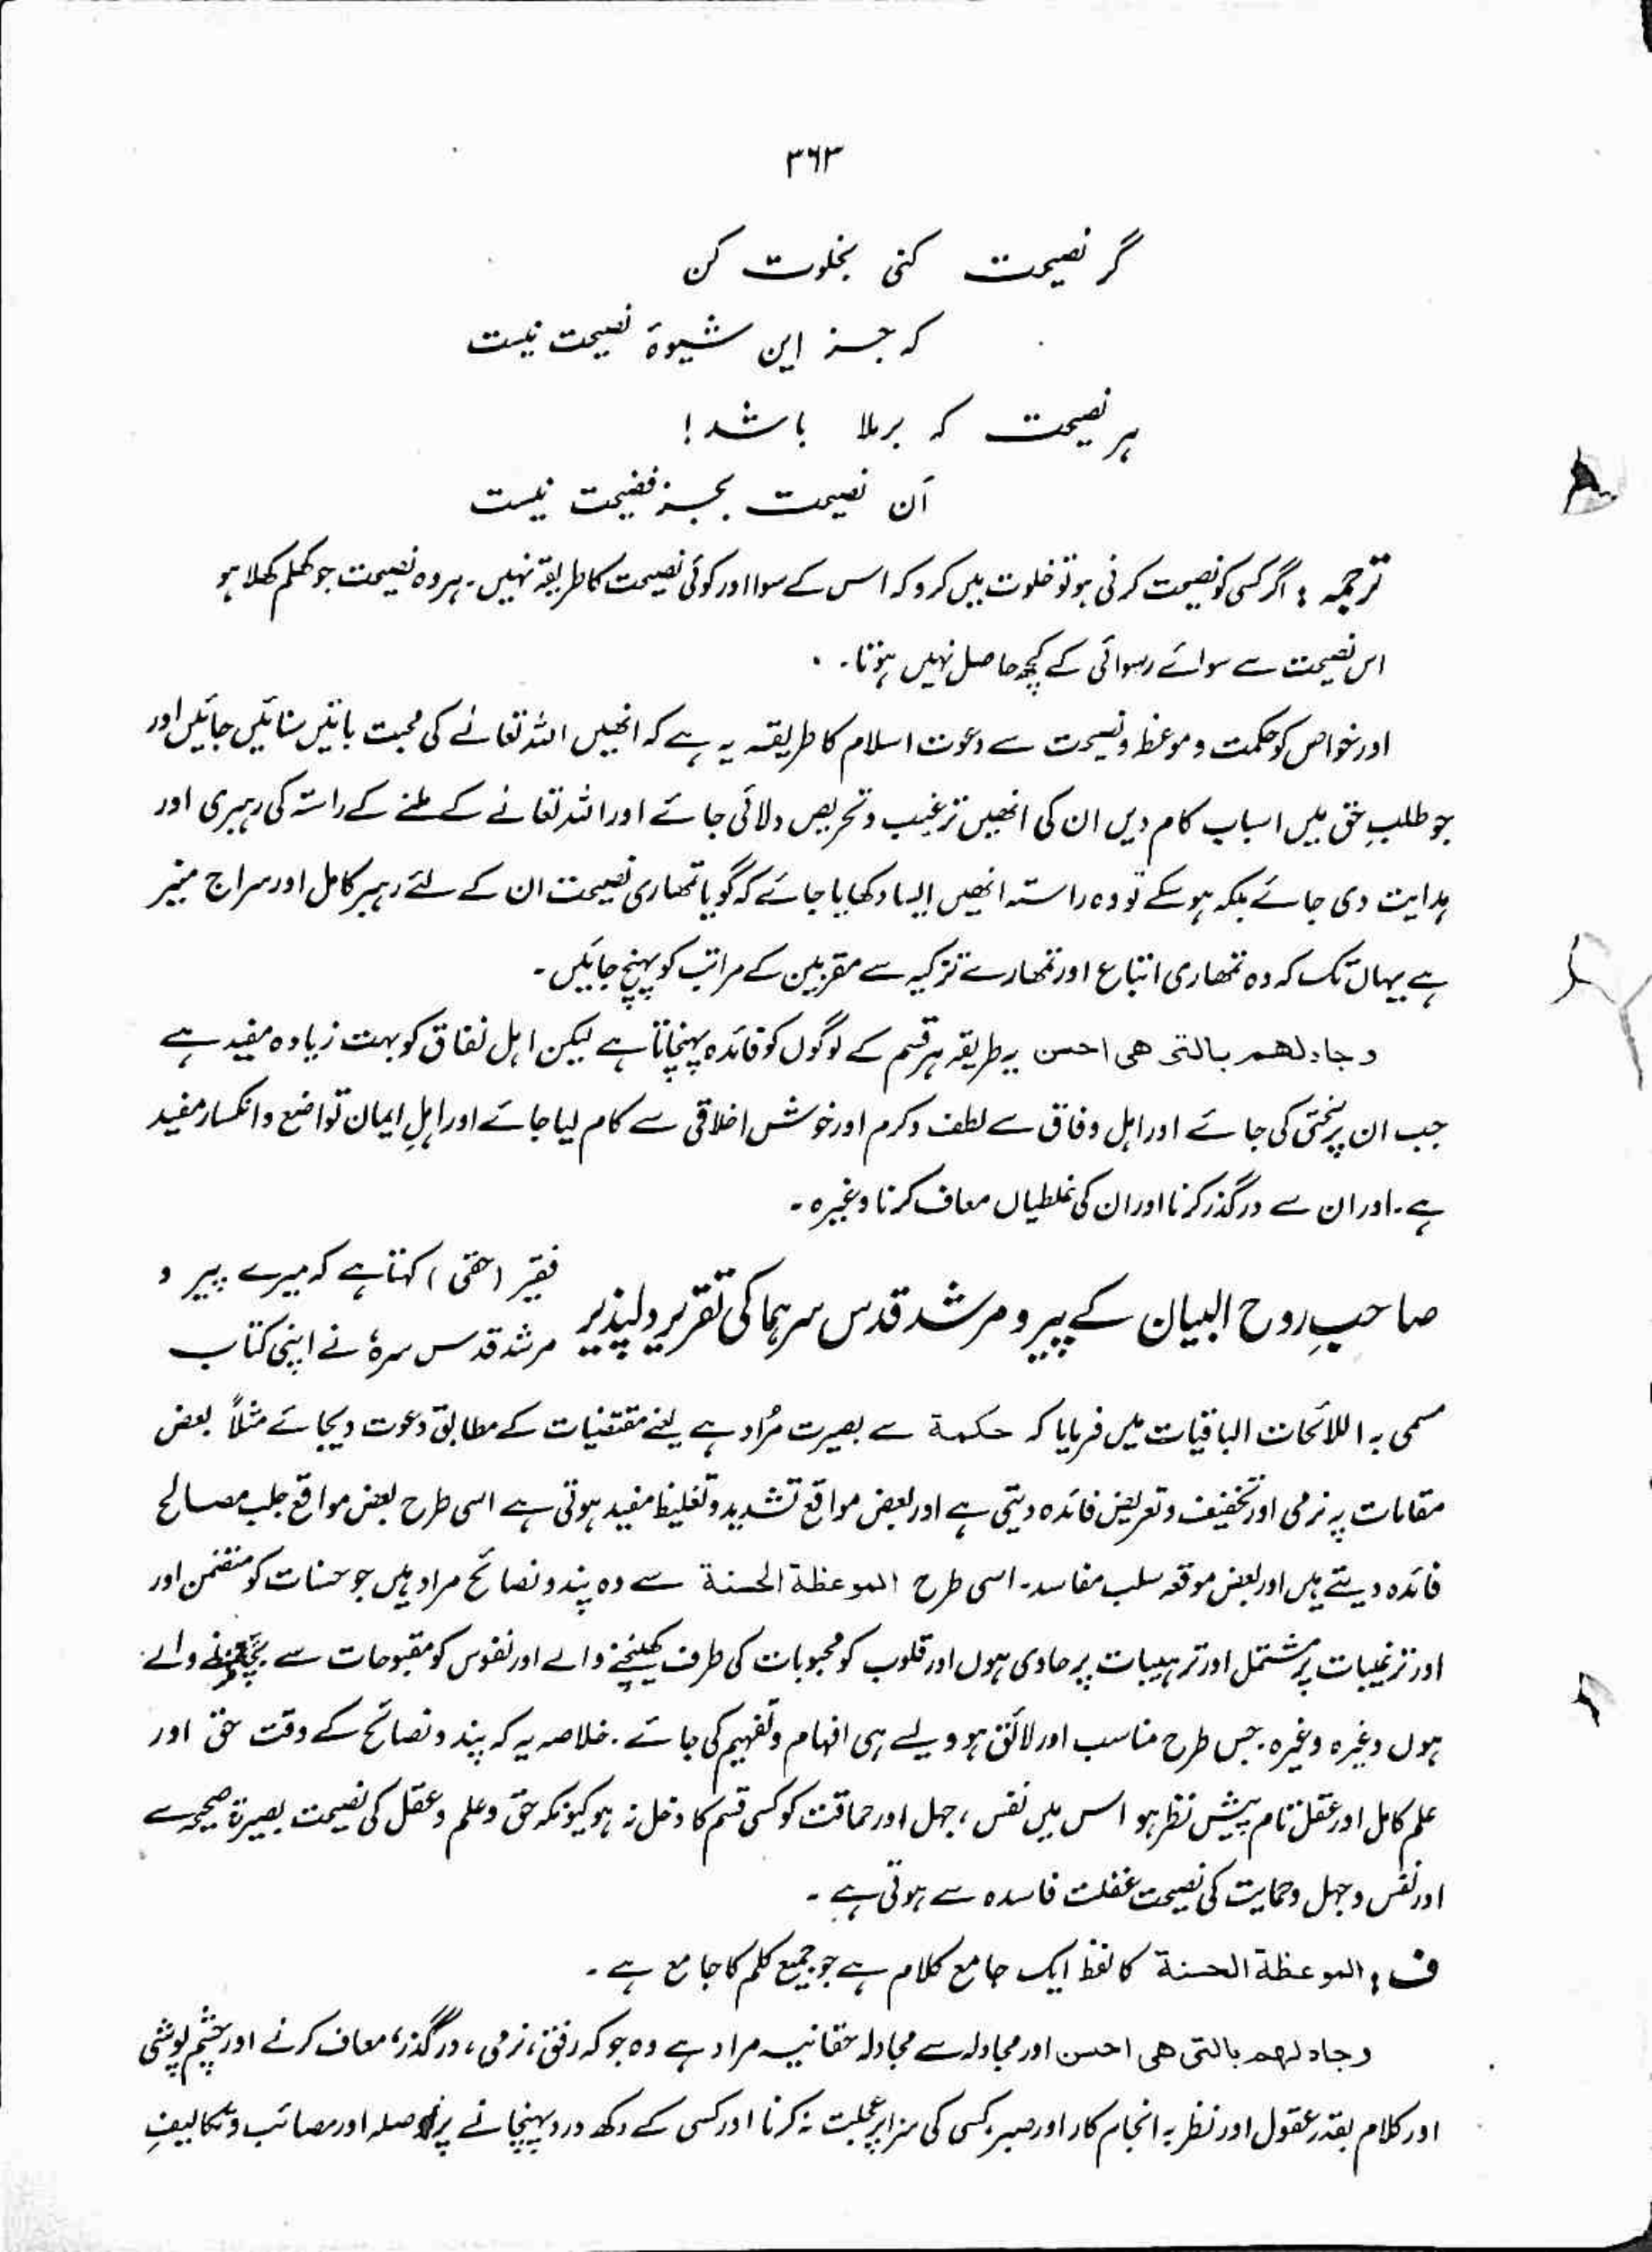 ۳۶۳
گر نصیحت کنی بخلوت کن
کہ جز این شیوۂ نصیحت نیست
ہر نصیحت کہ برملا باشد!
آن نصیحت بجز فضیحت نیست
ترجمہ : اگر کسی کو نصیحت کرنی ہو تو خلوت میں کرو کہ اس کے سوا اور کوئی نصیحت کا طریقہ نہیں۔ ہر وہ نصیحت جو کھلم کھلا ہو
اس نصیحت سے سوائے رسوائی کے کچھ حاصل نہیں ہوتا۔
اور خواص کو حکمت و موعظ و نصیحت سے دعوت اسلام کا طریقہ یہ ہے کہ انھیں اللہ تعالٰے کی محبت باتیں سنائیں جائیں اور
جو طلبِ حق میں اسباب کام دیں ان کی انھیں ترغیب و تحریص دلائی جائے اور اللہ تعالٰے کے ملنے کے راستہ کی رہبری اور
ہدایت دی جائے بلکہ ہو سکے تو وہ راستہ انھیں ایسا دکھایا جائے کہ گویا تمھاری نصیحت ان کے لئے رہبر کامل اور سراج منیر
ہے یہاں تک کہ وہ تمھاری اتباع اور تمھارے تزکیہ سے مقربین کے مراتب کو پہنچ جائیں۔
وجادلھم بالتی ھی احسن یہ طریقہ ہر قسم کے لوگوں کو فائدہ پہنچاتا ہے لیکن اہل نفاق کو بہت زیادہ مفید ہے
جب ان پر سختی کی جائے اور اہل وفاق سے لطف و کرم اور خوش اخلاقی سے کام لیا جائے اور اہلِ ایمان تواضع و انکسار مفید
ہے۔ اور ان سے درگذر کرنا اور ان کی غلطیاں معاف کرنا وغیرہ۔
صاحبِ روح البیان کے پیر و مرشد قدس سرہما کی تقریر دلپذیر
فقیر (حقی) کہتا ہے کہ میرے پیر و
مرشد قدس سرہٗ نے اپنی کتاب
مسمی بہ اللائحات الباقیات میں فرمایا کہ حکمۃ سے بصیرت مُراد ہے یعنے مقتضیات کے مطابق دعوت دیجائے مثلاً بعض
مقامات پہ نرمی اور تخفیف و تعریض فائدہ دیتی ہے اور بعض مواقع تشدید و تغلیظ مفید ہوتی ہے اسی طرح بعض مواقع جلب مصالح
فائدہ دیتے ہیں اور بعض موقعہ سلب مفاسد۔ اسی طرح الموعظۃ الحسنۃ سے وہ پند و نصائح مراد ہیں جو حسنات کو متضمن اور
اور ترغیبات پر مشتمل اور ترہیبات پر حاوی ہوں اور قلوب کو محبوبات کی طرف کھینچنے والے اور نفوس کو مقبوحات سے والے
ہوں وغیرہ وغیرہ۔ جس طرح مناسب اور لائق ہو ویسے ہی افہام و تفہیم کی جائے۔ خلاصہ یہ کہ پند و نصائح کے وقت حق اور
علم کامل اور عقل تام پیشِ نظر ہو اس میں نفس، جہل اور حماقت کو کسی قسم کا دخل نہ ہو کیونکہ حق و علم و عقل کی نصیحت بصیرۃ صحیحہ سے
اور نفس و جہل و حمایت کی نصیحت غفلت فاسدہ سے ہوتی ہے۔
ف : الموعظۃ الحسنۃ کا لفظ ایک جامع کلام ہے جو جمیع کلم کا جامع ہے۔
وجادلھم بالتی ھی احسن اور مجادلہ سے مجادلہ حقانیہ مراد ہے وہ جو کہ رفق، نرمی، درگذر، معاف کرنے اور چشم پوشی
اور کلام بقدر عقول اور نظر بہ انجام کار اور صبر، کسی کی سزا پر عجلت نہ کرنا اور کسی کے دکھ درد پہنچانے پر حوصلہ اور مصائب و تکالیفِ